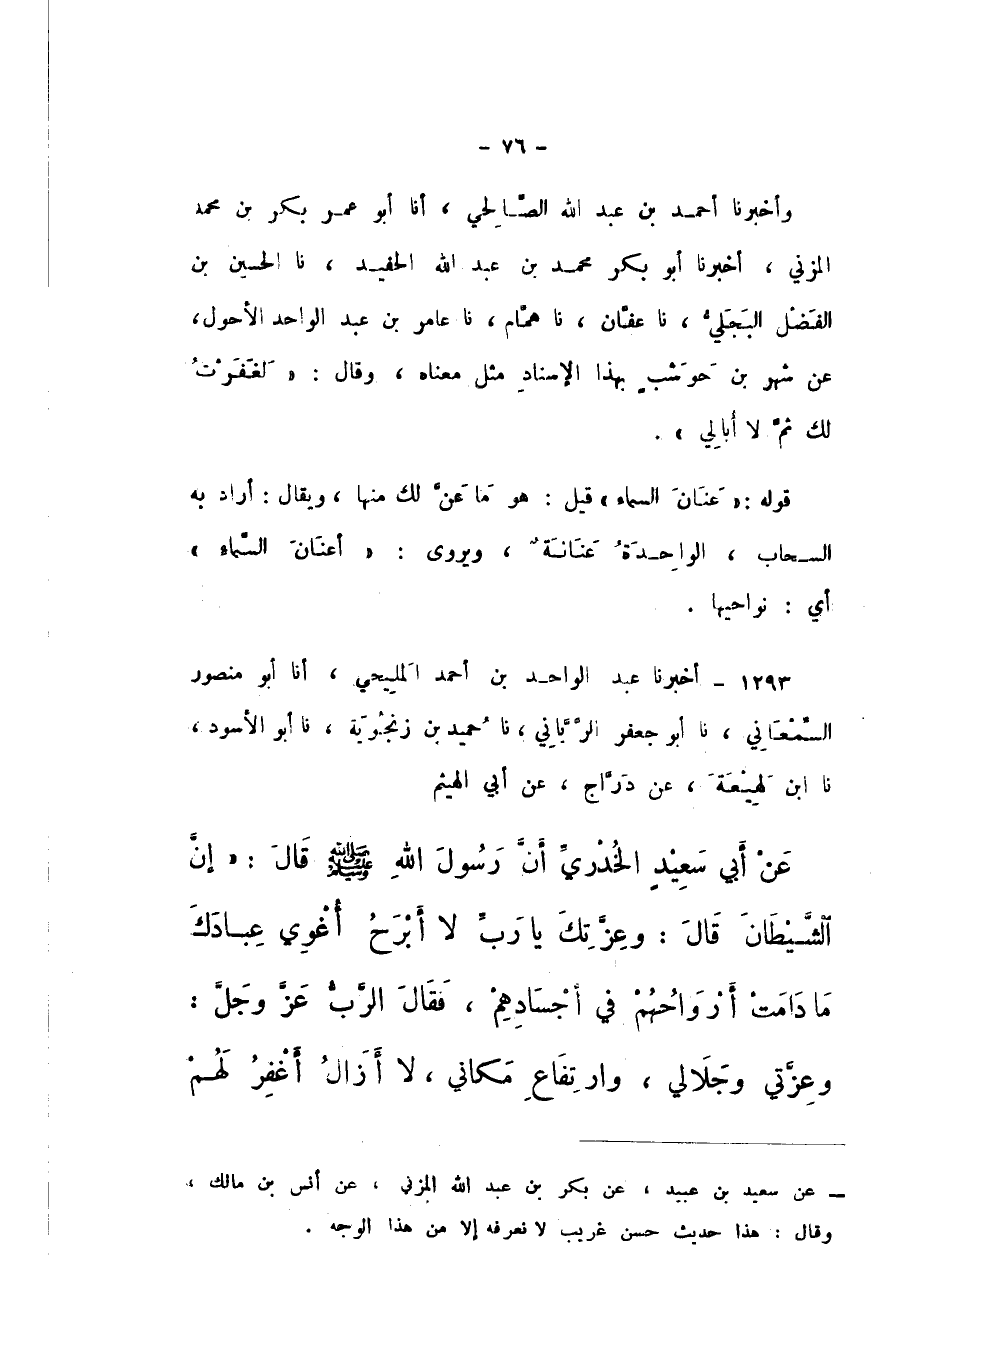 - ٧٦ -
وأخبرنا أحمد بن عبد الله الصَّالحي ، أنا أبو عمر بكر بن محمد
المزني ، أخبرنا أبو بكر محمد بن عبد الله الحفيد ، نا الحسين بن
الفَضْل البَجَليُّ ، نا عفّان ، نا همّام ، نا عامر بن عبد الواحد الأحول،
عن شهر بن حَوشَبٍ بهذا الإسنادِ مثل معناه ، وقال : « لَغَفَرْتُ
لك ثمَّ لا أُبالي » .
قوله : « عَنَانَ السماء » قيل : هو مَا عَنَّ لك منها ، ويقال : أراد به
السحاب ، الواحِدَةُ عَنَانَةٌ ، ويروى : « أعنَانَ السَّماء »
أي : نواحيها .
١٢٩٣ - أخبرنا عبد الواحد بن أحمد المَليحي ، أنا أبو منصور
السَّمْعَاني ، نا أبو جعفر الرَّيَّاني ، نا حُميد بن زنجُوَيَة ، نا أبو الأسود ،
نا ابن لَهِيْعَةَ ، عن دَرَّاج ، عن أبي الهيثم
عَنْ أَبي سَعِيْدٍ الخُدْرِيِّ أَنَّ رَسُولَ اللهِ ﷺ قَالَ : « إنَّ
ٱلشَّيْطَانَ قَالَ : وعِزَّتِكَ يا رَبِّ لا أَبْرَحُ أُغْوِي عِبادَكَ
مَا دَامَتْ أَرْوَاحُهُمْ في أجْسَادِهِمْ ، فَقَالَ الرَّبُّ عَزَّ وجَلَّ :
وعِزَّتي وجَلَالي ، وارتِفَاعِ مَكاني ، لا أَزَالُ أَغْفِرُ لَهُمْ
ـ عن سعيد بن عبيد ، عن بكر بن عبد الله المزني ، عن أنس بن مالك ،
وقال : هذا حديث حسن غريب لا نعرفه إلا من هذا الوجه .